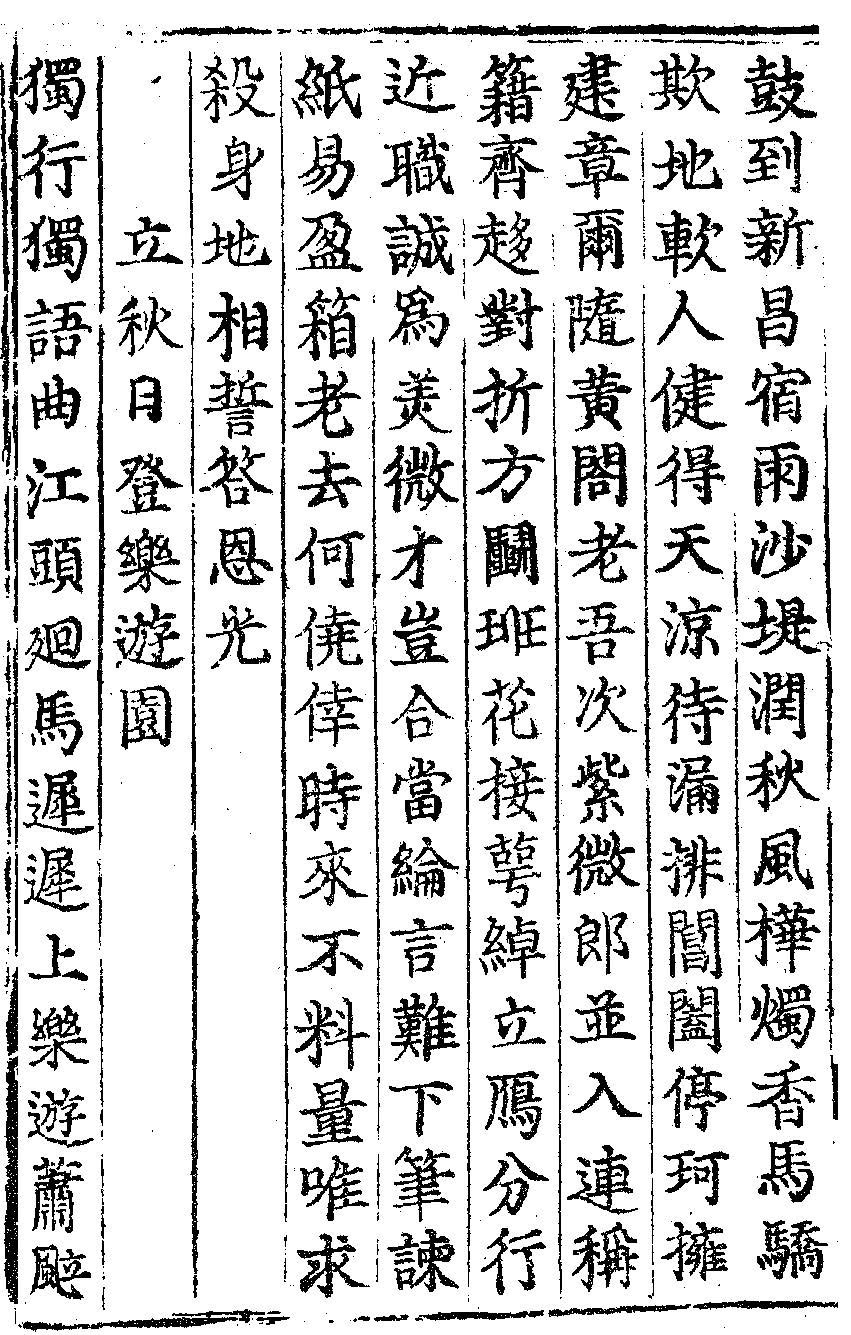 鼓到新昌宿雨沙堤潤秋風樺燭香馬驕
欺地軟人健得天涼待漏排閶闔停珂擁
建章爾隨黃閤老吾次紫微郎並入連稱
籍齊趍對折方鬭班花接萼綽立鴈分行
近職誠爲羙微才豈合當綸言難下筆諫
紙易盈箱老去何僥倖時來不料量唯求
殺身地相誓答恩光
立秋日登樂遊園
獨行獨語曲江頭廻馬遲遲上樂遊蕭颰